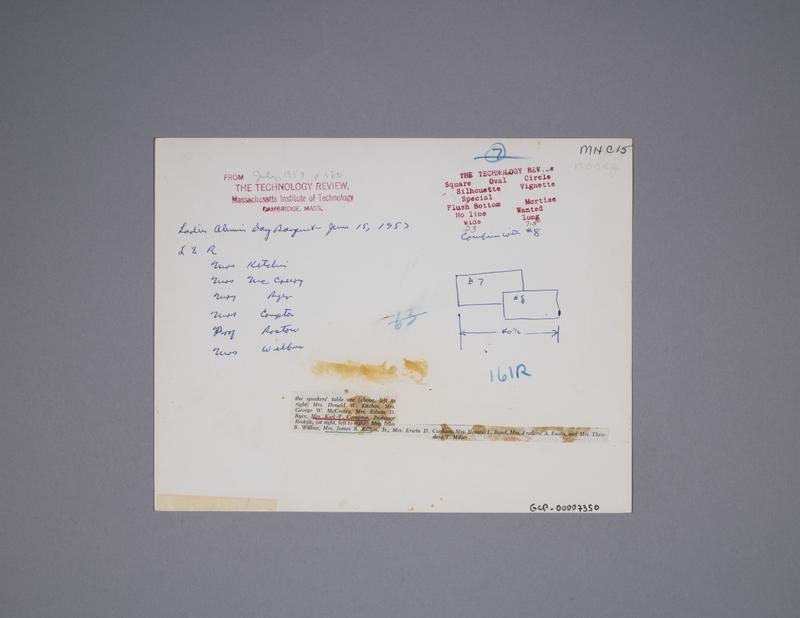 7
MHC15
FROM July, 1953 p.
THE TECHNOLOGY REVIEW,
Massachusetts Institute of Technology
CAMBRIDGE, MASS.
THE TECHNOLOGY REV
Square Oval Circle
Silhouette Vignette
Special
Flush Bottom Mortise
No line Wanted
wide long
Combine with #8
Ladies Alumni Day Banquet - June 15, 1953
L & R
Mrs Kitchin
Mrs McCreery
Mrs Ryer
Mrs Compton
Prof Rostow
Mrs Wilbur
#7
#8
161R
the speakers' table are (above, left to
right) Mrs. Donald W. Kitchin, Mrs.
George W. McCreery, Mrs. Edwin D.
Ryer, Mrs. Karl T. Compton, Professor
Rostow, (at right, left to right) Mrs. John
B. Wilbur, Mrs. James R. Killian, Jr., Mrs. Erwin D. Mrs. Horatio L. Bond, Mrs. Frederic A. and Mrs. Theo-
dore T. Miller
GCP-00007350